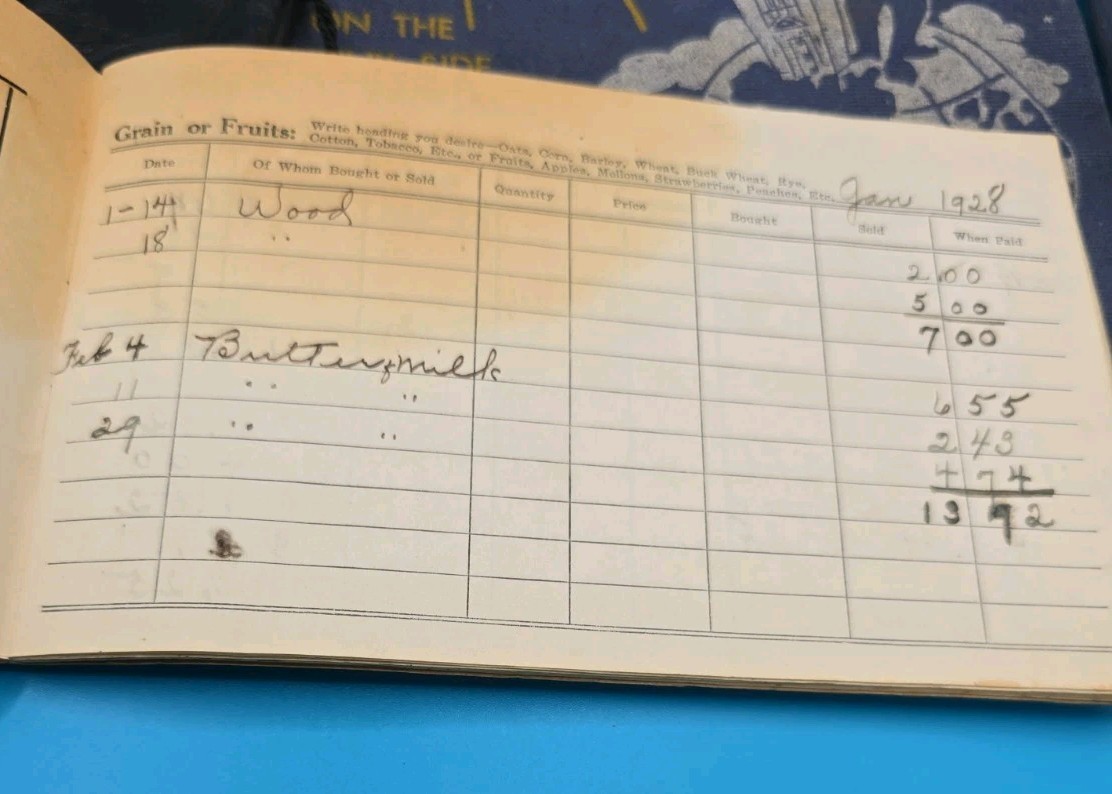 ON THE
SIDE
Grain or Fruits: Write heading you desire—Oats, Corn, Barley, Wheat, Buck Wheat, Rye,
Cotton, Tobacco, Etc., or Fruits, Apples, Mellons, Strawberries, Peaches, Etc. Jan 1928
Date Of Whom Bought or Sold Quantity Price Bought Sold When Paid
1-14 Wood 2 00
18 " 5 00
7 00
Feb 4 Buttermilk 6 55
11 " " 2 43
29 " " 4 74
13 92